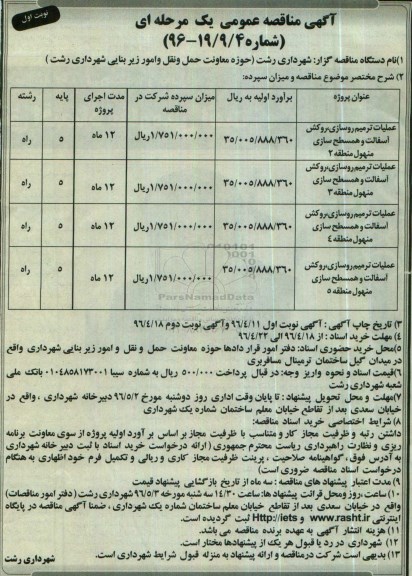 نوبت اول
آگهی مناقصه عمومی یک مرحله ای
(شماره ۱۹/۹/۴-۹۶)
۱)نام دستگاه مناقصه گزار: شهرداری رشت (حوزه معاونت حمل ونقل وامور زیر بنایی شهرداری رشت )
۲) شرح مختصر موضوع مناقصه و میزان سپرده:
عنوان پروژه برآورد اولیه به ریال میزان سپرده شرکت در مناقصه مدت اجرای پروژه پایه رشته
عملیات ترمیم روسازی،روکش آسفالت و همسطح سازی منهول منطقه ۲ ۳۵/۰۰۵/۸۸۸/۳۶۰ ۱/۷۵۱/۰۰۰/۰۰۰ریال ۱۲ ماه ۵ راه
عملیات ترمیم روسازی،روکش آسفالت و همسطح سازی منهول منطقه ۳ ۳۵/۰۰۵/۸۸۸/۳۶۰ ۱/۷۵۱/۰۰۰/۰۰۰ریال ۱۲ ماه ۵ راه
عملیات ترمیم روسازی،روکش آسفالت و همسطح سازی منهول منطقه ۴ ۳۵/۰۰۵/۸۸۸/۳۶۰ ۱/۷۵۱/۰۰۰/۰۰۰ریال ۱۲ ماه ۵ راه
عملیات ترمیم روسازی،روکش آسفالت و همسطح سازی منهول منطقه ۵ ۳۵/۰۰۵/۸۸۸/۳۶۰ ۱/۷۵۱/۰۰۰/۰۰۰ریال ۱۲ ماه ۵ راه
ParsNamadData
۳) تاریخ چاپ آگهی : آگهی نوبت اول ۹۶/۴/۱۱ وآگهی نوبت دوم ۹۶/۴/۱۸
۴) مهلت خرید اسناد : از ۹۶/۴/۱۸ الی ۹۶/۴/۲۲
۵)محل خرید حضوری اسناد: دفتر امور قرار دادها حوزه معاونت حمل و نقل و امور زیر بنایی شهرداری واقع
در میدان گیل ساختمان ترمینال مسافربری
۶)قیمت اسناد و نحوه واریز وجه: در قبال پرداخت ۵۰۰/۰۰۰ ریال به شماره سیبا ۰۱۰۴۸۵۸۱۷۳۰۰۱ بانک ملی
شعبه شهرداری رشت
۷)مهلت و محل تحویل پیشنهاد : تا پایان وقت اداری روز دوشنبه مورخ ۹۶/۵/۲ دبیرخانه شهرداری ، واقع در
خیابان سعدی بعد از تقاطع خیابان معلم ساختمان شماره یک شهرداری
۸) شرایط اختصاصی خرید اسناد مناقصه:
داشتن رتبه و ظرفیت مجاز کار و متناسب با ظرفیت مجاز بر اساس بر آورد اولیه پروژه از سوی معاونت برنامه
ریزی و نظارت راهبردی ریاست محترم جمهوری (ارائه درخواست خرید اسناد با ثبت دبیر خانه شهرداری
به آدرس فوق ، گواهینامه صلاحیت ، پرینت ظرفیت مجاز کاری و ریالی و تکمیل فرم خود اظهاری به هنگام
درخواست اسناد مناقصه ضروری است)
۹) مدت اعتبار پیشنهاد های مناقصه : سه ماه از تاریخ بازگشایی پیشنهاد قیمت
۱۰) ساعت ،روز ومحل قرائت پیشنهاد ها: ساعت ۱۴/۳۰ سه شنبه مورخه ۹۶/۵/۳ شهرداری رشت (دفتر امور مناقصات)
واقع در خیابان سعدی بعد از تقاطع خیابان معلم ساختمان شماره یک شهرداری ، ضمنا آگهی مناقصه در پایگاه
اینترنتی www.rasht.ir و Http://iets ثبت گردیده است.
۱۱) هزینه انتشار آگهی به عهده برنده مناقصه می باشد.
۱۲) شهرداری در رد یا قبول هر یک از پیشنهادها مختار است.
۱۳) بدیهی است شرکت درمناقصه و ارائه پیشنهاد به منزله قبول شرایط شهرداری است.
شهرداری رشت